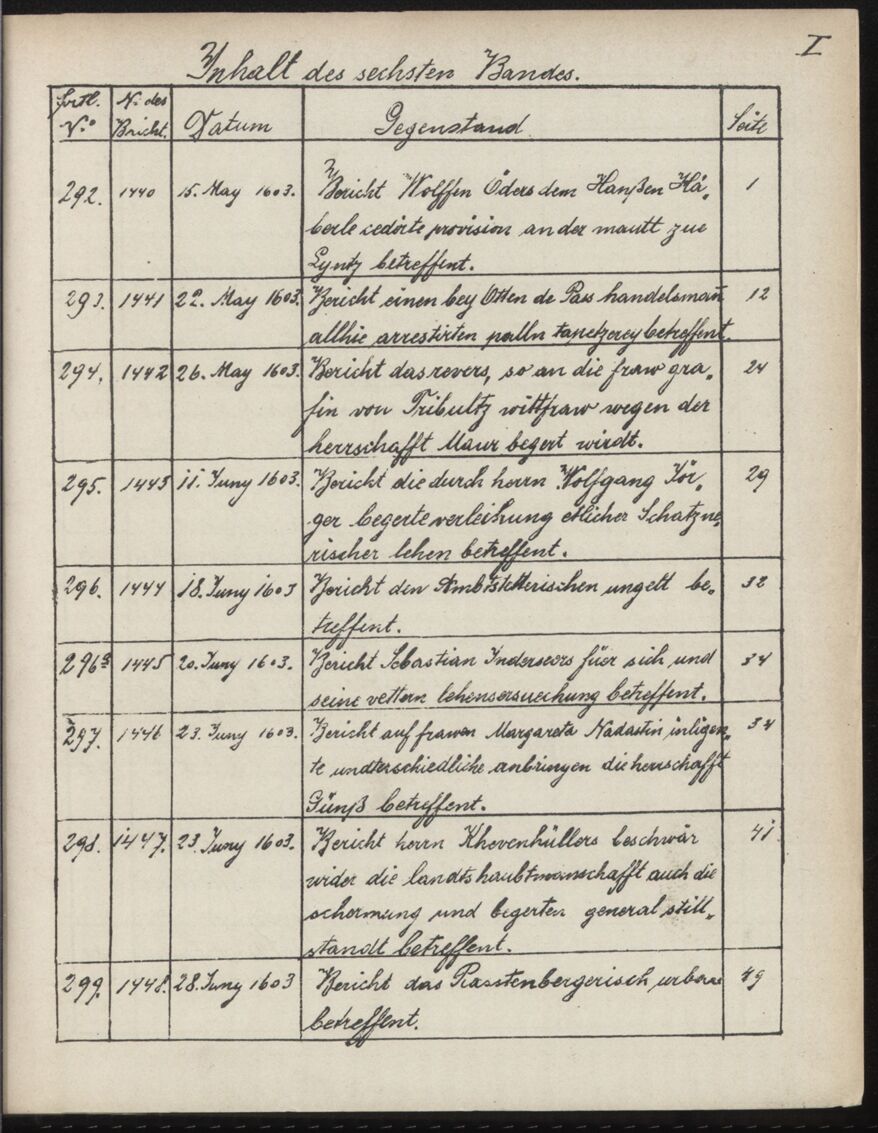 I
Inhalt des sechsten Bandes.
fortl. No. | No. des Bericht. | Datum | Gegenstand | Seite
292. | 1440 | 15. May 1603. | Bericht Wolffen Öders dem Hanßen Hä„ | 1
berle cedirte provision an der mautt zue
Lyntz betreffent.
293. | 1441 | 22. May 1603. | Bericht einen bey Otten de Pass handelsman̄ | 12
allhie arrestirten palln tapetzerey betreffent.
294. | 1442 | 26. May 1603. | Bericht das revers, so an die fraw gra„ | 24
fin von Tribultz wittfraw wegen der
herrschafft Maur begert wirdt.
295. | 1443 | 11. Juny 1603. | Bericht die durch herrn Wolfgang Jör„ | 29
ger begerte verleihung etlicher Schatzne„
rischer lehen betreffent.
296. | 1444 | 18. Juny 1603 | Bericht den Ambstetterischen ungelt be„ | 32
treffent.
296a | 1445 | 20. Juny 1603. | Bericht Sebastian Inderseers füer sich und | 34
seine vettern lehensersuechung betreffent.
297. | 1446 | 23. Juny 1603. | Bericht auf frawen Margareta Nadastin inligen„ | 34
te undterschiedliche anbringen die herrschafft
Günß betreffent.
298. | 1447. | 23. Juny 1603. | Bericht herrn Khevenhüllers beschwär | 41
wider die landtshaubtmanschafft auch die
schermung und begerten general still„
standt betreffent.
299. | 1448. | 28. Juny 1603 | Bericht das Rasstenbergerisch | 49
betreffent.